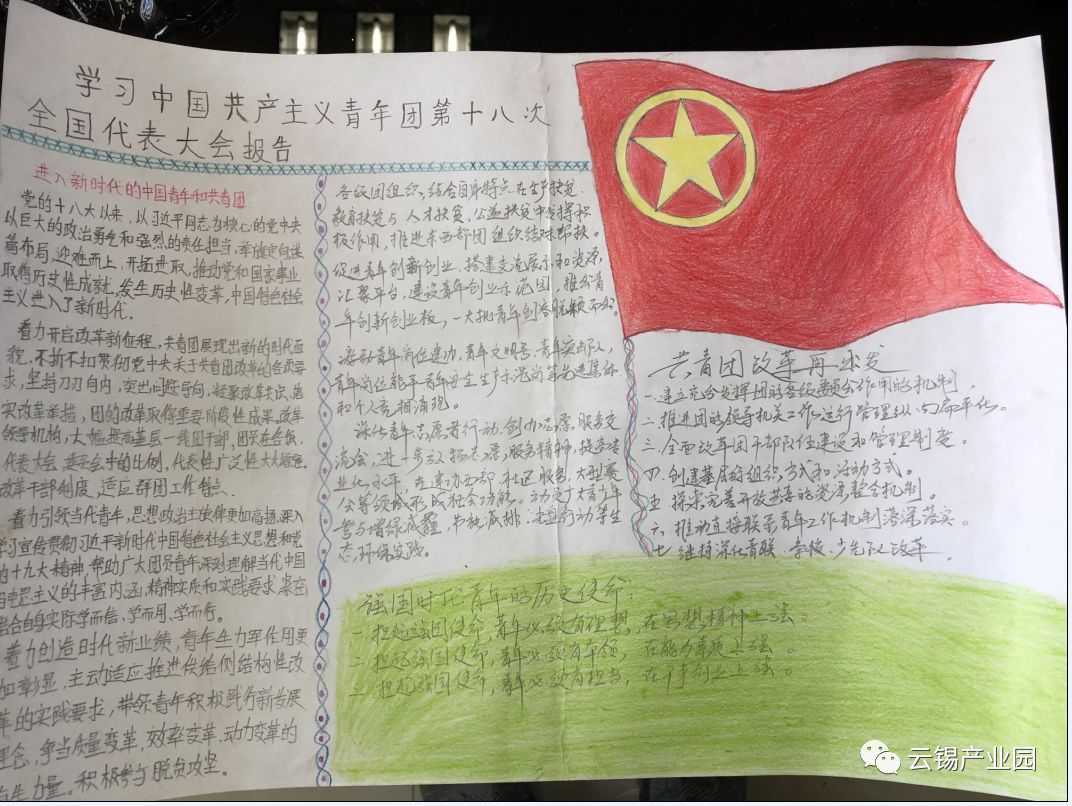 学习中国共产主义青年团第十八次
全国代表大会报告
进入新时代的中国青年和共青团
党的十八大以来，以习近平同志为核心的党中央
以巨大的政治勇气和强烈的责任担当，举旗定向谋
篇布局，迎难而上，开拓进取，推动党和国家事业
取得历史性成就，发生历史性变革，中国特色社会
主义进入了新时代。
着力开启改革新征程，共青团展现出新的时代面
貌，不折不扣贯彻党中央关于共青团改革的各项要
求，坚持刀刃向内，突出问题导向，凝聚改革共识，落
实改革举措，团的改革取得重要阶段性成果。改革
领导机构，大幅提高基层一线团干部，团员在各级
代表大会，委员会中的比例，代表性广泛性大大增强
改革干部制度，适应群团工作特点。
着力引领当代青年，思想政治主旋律更加高扬，深入
学习宣传贯彻习近平新时代中国特色社会主义思想和党
的十九大精神，帮助广大团员青年深刻理解当代中国
马克思主义的丰富内涵，精神实质和实践要求，紧密
结合自身实际学而信，学而用，学而行。
着力创造时代新业绩，青年生力军作用更
加彰显，主动适应推进供给侧结构性改
革的实践要求，带领青年积极践行新发展
理念，争当质量变革，效率变革，动力变革的
生力量。积极参与脱贫攻坚。
各级团组织，结合自身特点，在生产扶贫，
教育扶贫与人才扶贫，公益扶贫中发挥积
极作用，推进东西部团组织结对帮扶。
促进青年创新创业，搭建交流展示和资源
汇聚平台，建设青年创业示范园，推出青
年创新创业板，一大批青年创客脱颖而出。
激励青年岗位建功，青年文明号，青年突击队，
青年岗位能手，青年安全生产示范岗等先进集体
和个人竞相涌现。
深化青年志愿者行动，创办志愿服务交
流会，进一步弘扬志愿服务精神，提高专
业化水平，在建功西部，社区服务，大型赛
会等领域形成社会功能。动员广大青少年
参与增绿减霾，节能减排，行动等生
态环保实践。
共青团改革再出发
一.建立充分发挥团的各级委员会作用的机制。
二.推进团的领导机关工作运行管理纵向扁平化。
三.全面改革团干部队伍建设和管理制度。
四.创建基层的组织方式和活动方式。
五.探索完善开放共享的资源整合机制。
六.推动直接联系青年工作机制落深落实。
七.继续深化青联，学校，少先队改革。
强国时代青年的历史使命：
一.担起强国使命，青年必须有理想，在思想精神上强。
二.担起强国使命，青年必须有本领，在能力素质上强。
三.担起强国使命，青年必须有担当，在干事创业上强。
云锡产业园